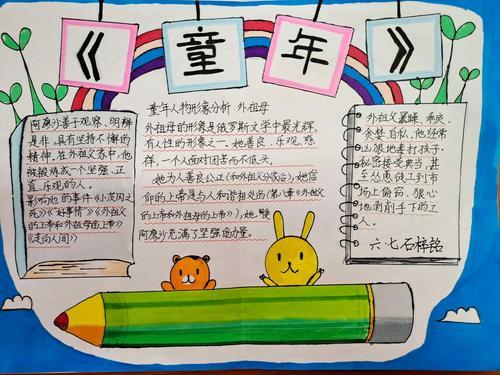 《童年》
阿廖沙善于观察、明辨
是非，具有坚持不懈的
精神，在外祖父家中，他
被锻炼成一个坚强、正
直、乐观的人。
影响他的事件《小茨冈之
死》《好事情》《外祖父
的上帝和外祖母的上帝》
《走向人间》
童年人物形象分析 外祖母
外祖母的形象是俄罗斯文学中最光辉、
有人性的形象之一，她善良、乐观、慈
祥，一个人面对困苦而不低头。
她为人善良公正（和外祖父分家后），她信
仰的上帝是与人和谐相处的（第八章《外祖父
的上帝和外祖母的上帝》），她
阿廖沙充满了坚强的力量。
外祖父暴躁、乖戾、
贪婪自私，他经常
凶狠地毒打孩子，
秘密接受卖当，甚
至怂恿徒工到市
场上偷药，狠心
地剥削手下的工
人。
六·七 石梓铭